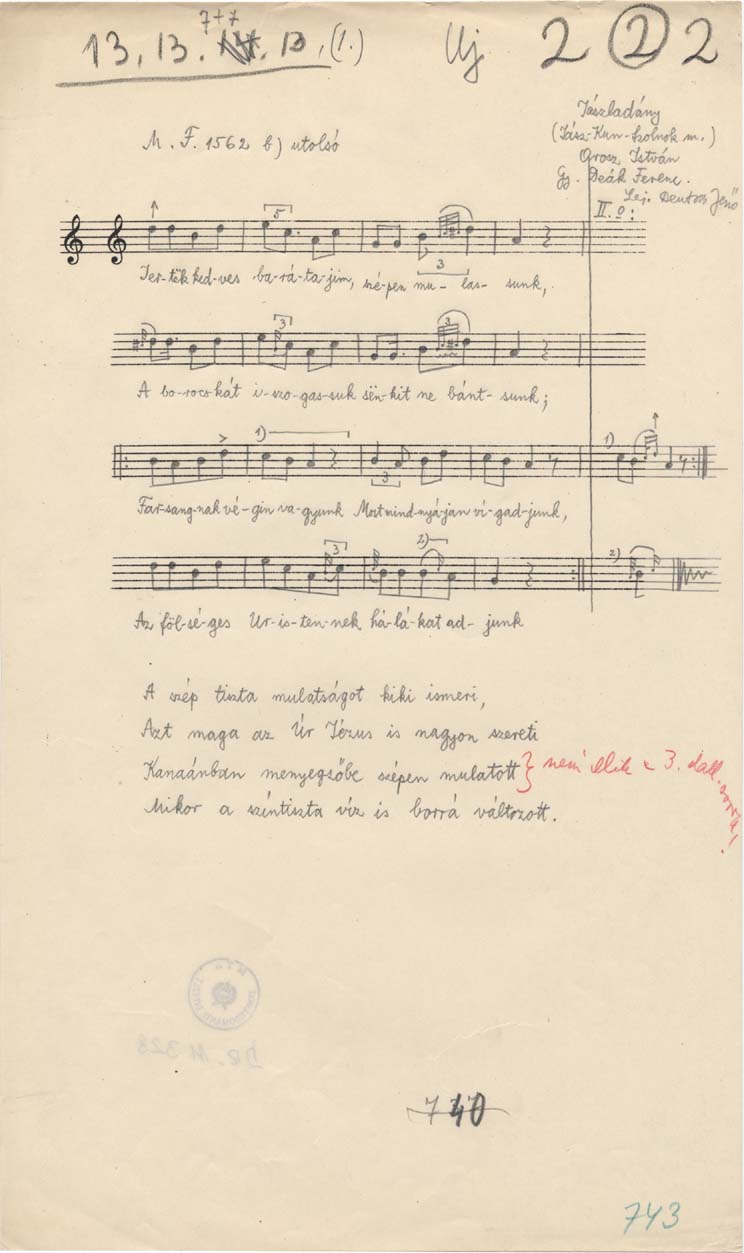 7+7
13, 13. 13, (1.) Uj 2 2 2
Jászladány
(Jász-Kun-Szolnok m.)
Orosz István
Gy. Deák Ferenc.
Lej. Deutsch Jenő
M. F. 1562 b) utolsó
II. o:
5
Jer-tëk ked-ves ba-rá-ta-jim, szé-pen mu-las-sunk,
3
3
3
A bo-rocs-kát i-szo-gas-suk sën-kit ne bánt-sunk;
1)
1)
3
Far-sang-nak vé-gin va-gyunk Most mind-nyá-jan ví-gad-junk,
3
2)
2)
Az föl-sé-ges Ur-is-ten-nek há-lá-kat ad-junk
A szép tiszta mulatságot kiki ismeri,
Azt maga az Úr Jézus is nagyon szereti
Kanaánban menyegzőbe szépen mulatott } nem illik a 3. dall. sorra!
Mikor a színtiszta víz is borrá változott.
DR. M 328
740
743